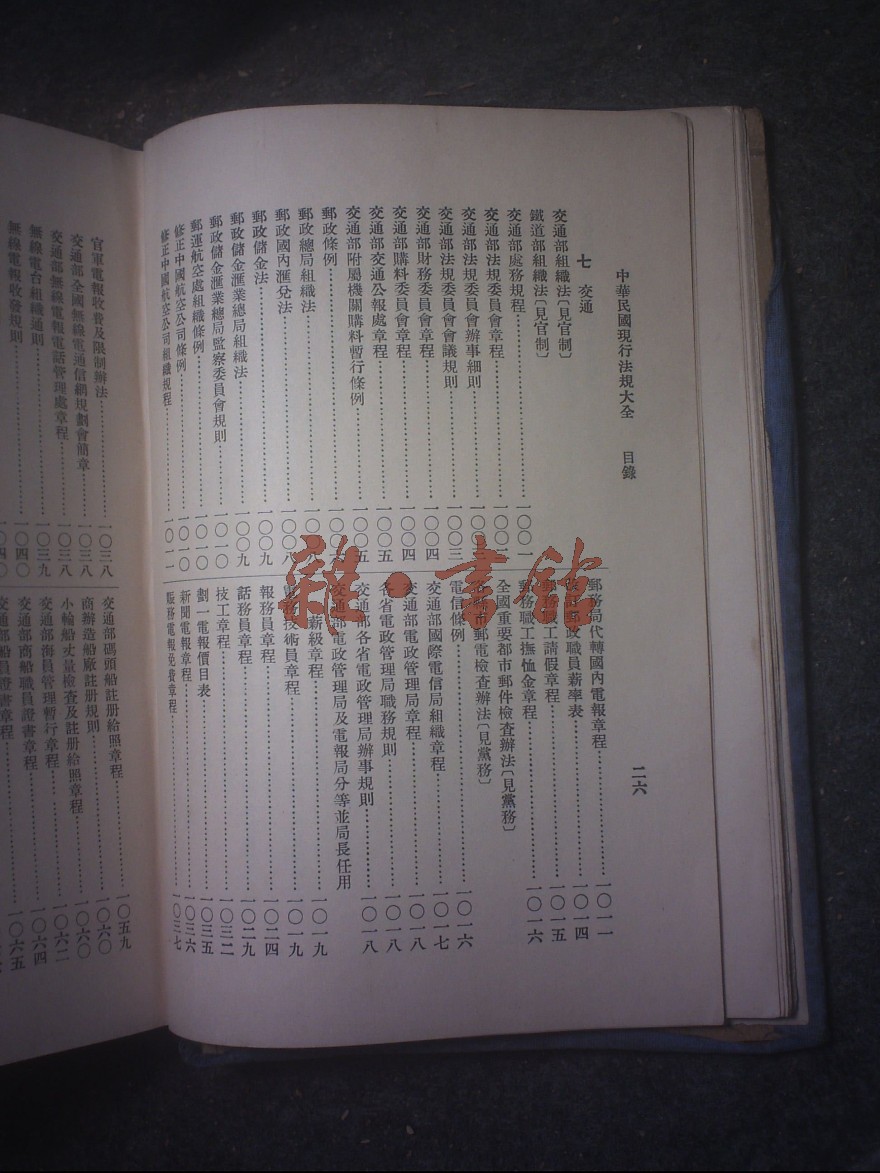 中華民國現行法規大全 目錄 二六
七 交通
交通部組織法〔見官制〕
鐵道部組織法〔見官制〕
交通部處務規程……一〇〇一
交通部法規委員會章程……一〇〇二
交通部法規委員會辦事細則……一〇〇三
交通部法規委員會會議規則……一〇〇三
交通部財務委員會章程……一〇〇四
交通部購料委員會章程……一〇〇四
交通部交通公報處章程……一〇〇五
交通部附屬機關購料暫行條例……一〇〇五
郵政條例……
郵政總局組織法……
郵政國內匯兌法……一〇〇八
郵政儲金法……一〇〇九
郵政儲金匯業總局組織法……一〇〇九
郵政儲金匯業總局監察委員會規則……一〇一〇
郵運航空處組織條例……一〇一〇
修正中國航空公司條例……一〇一〇
修正中國航空公司組織規程……一〇一一
郵務局代轉國內電報章程……一〇一一
改訂郵政職員薪率表……一〇一四
郵務職工請假章程……一〇一五
郵務職工撫恤金章程……一〇一六
全國重要都市郵件檢查辦法〔見黨務〕
各縣市郵電檢查辦法〔見黨務〕
電信條例……一〇一六
交通部國際電信局組織章程……一〇一七
交通部電政管理局章程……一〇一八
各省電政管理局職務規則……一〇一八
交通部各省電政管理局辦事規則……一〇一八
交通部電政管理局及電報局分等並局長任用
薪級章程……一〇一九
電務技術員章程……一〇一九
報務員章程……一〇二四
話務員章程……一〇二九
技工章程……一〇三二
劃一電報價目表……一〇三五
新聞電報章程……一〇三六
賑務電報免費章程……一〇三七
官軍電報收費及限制辦法……一〇三八
交通部全國無線電通信網規劃會簡章……一〇三八
交通部無線電報電話管理處章程……一〇三八
無線電台組織通則……一〇三九
無線電報收發規則……一〇四〇
交通部碼頭船註册給照章程……一〇五九
商辦造船廠註册規則……一〇六〇
小輪船丈量檢查及註册給照章程……一〇六〇
交通部海員管理暫行章程……一〇六二
交通部商船職員證書章程……一〇六四
交通部船員證書章程……一〇六五
雜·書館